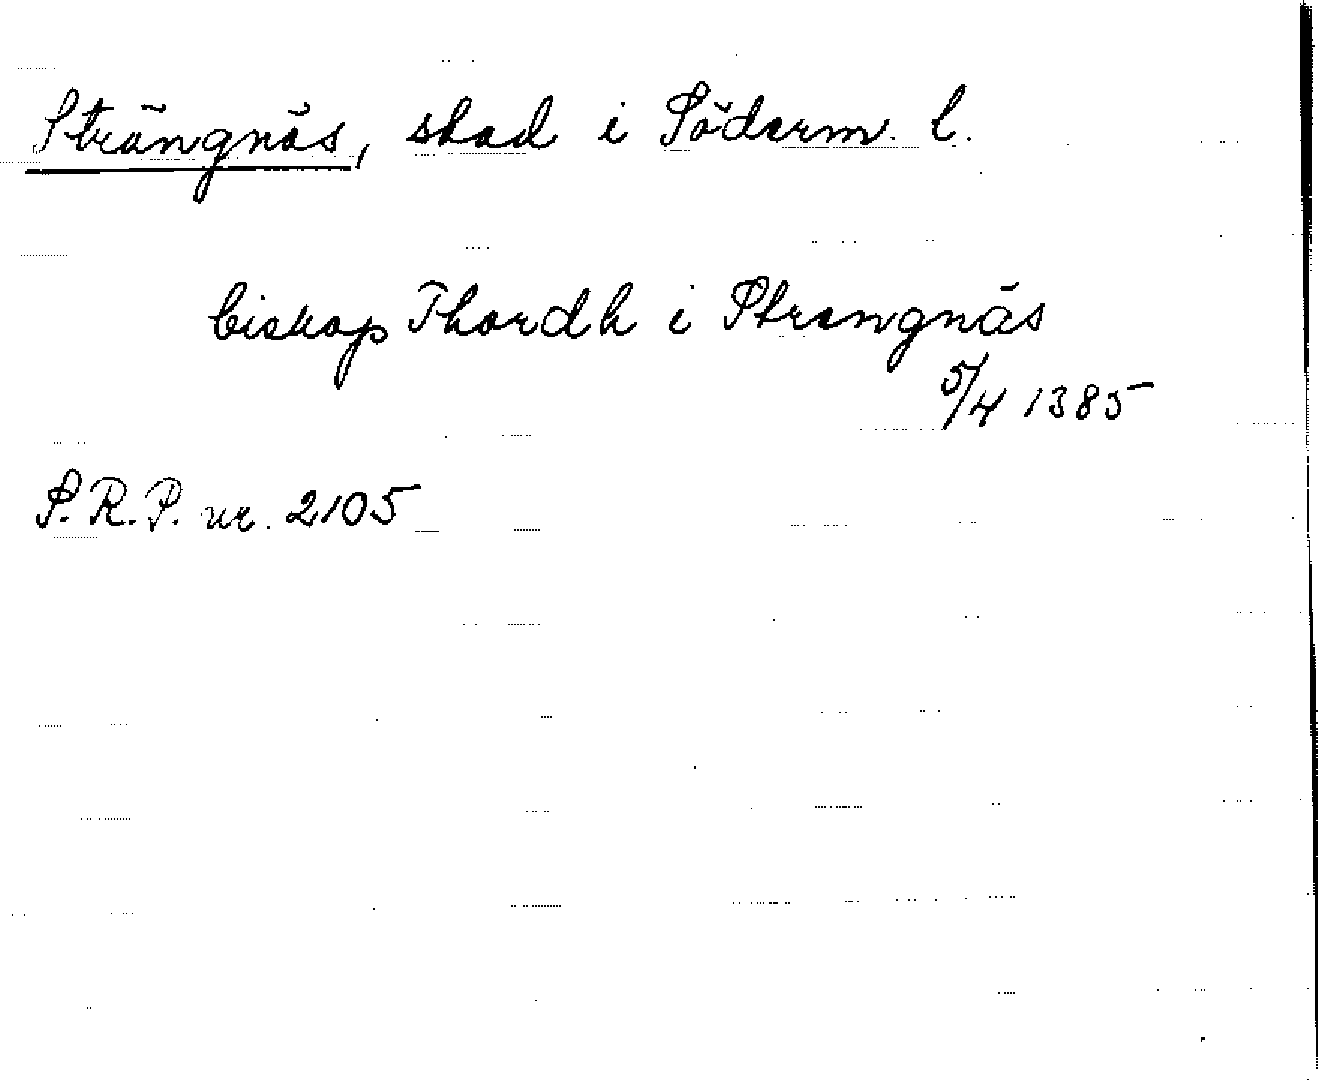 Strängnäs, stad i Söderm. l.
biskop Thordh i Strengnäs
5/4 1385
S.R.P. nr. 2105